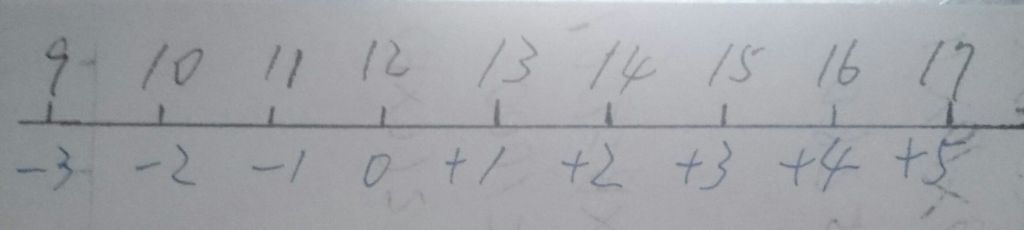 9 10 11 12 13 14 15 16 17
-3 -2 -1 0 +1 +2 +3 +4 +5